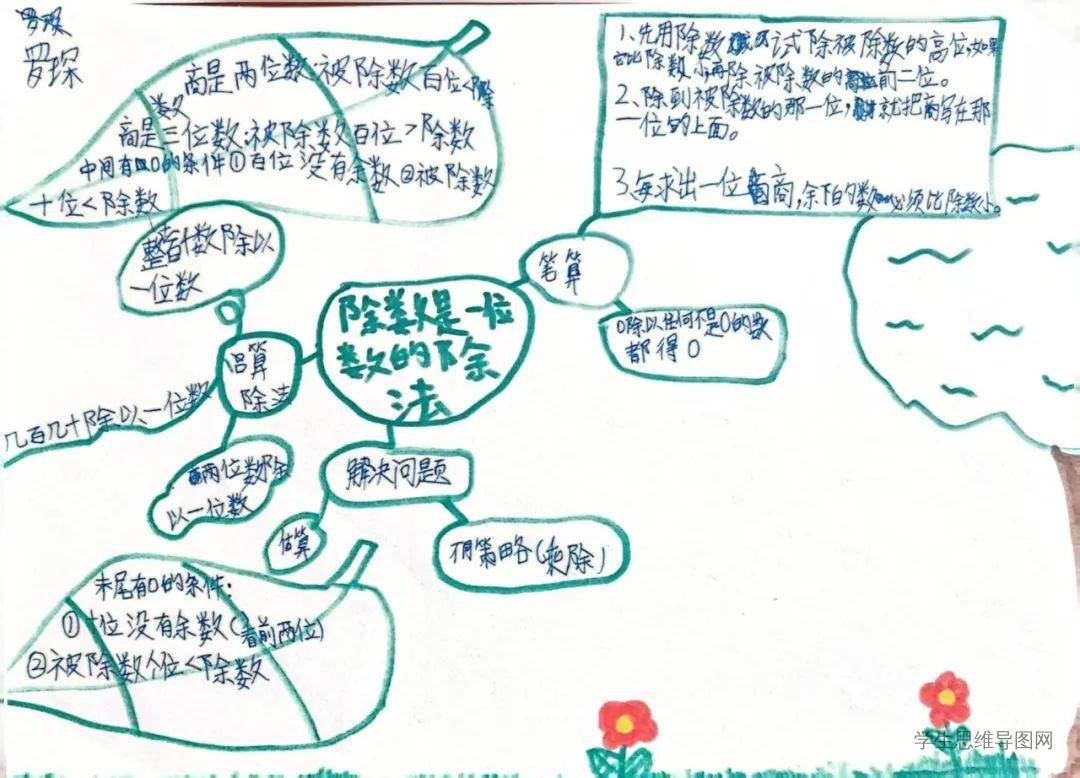 罗琛
罗琛
商是两位数:被除数百位<除
数
商是三位数:被除数百位>除数
中间有0的条件①百位没有余数②被除数
十位<除数
1、先用除数试除被除数的高位,如果
它比除数小,再除被除数的前二位。
2、除到被除数的那一位,就把商写在那
一位的上面。
3、每求出一位商,余下的数必须比除数小。
笔算
0除以任何不是0的数
都得0
除数是一位
数的除
法
整百十数除以
一位数
口算
除法
几百几十除以一位数
两位数除
以一位数
解决问题
估算
用策略(乘除)
末尾有0的条件:
①十位没有余数(看前两位)
②被除数个位<除数
学生思维导图网